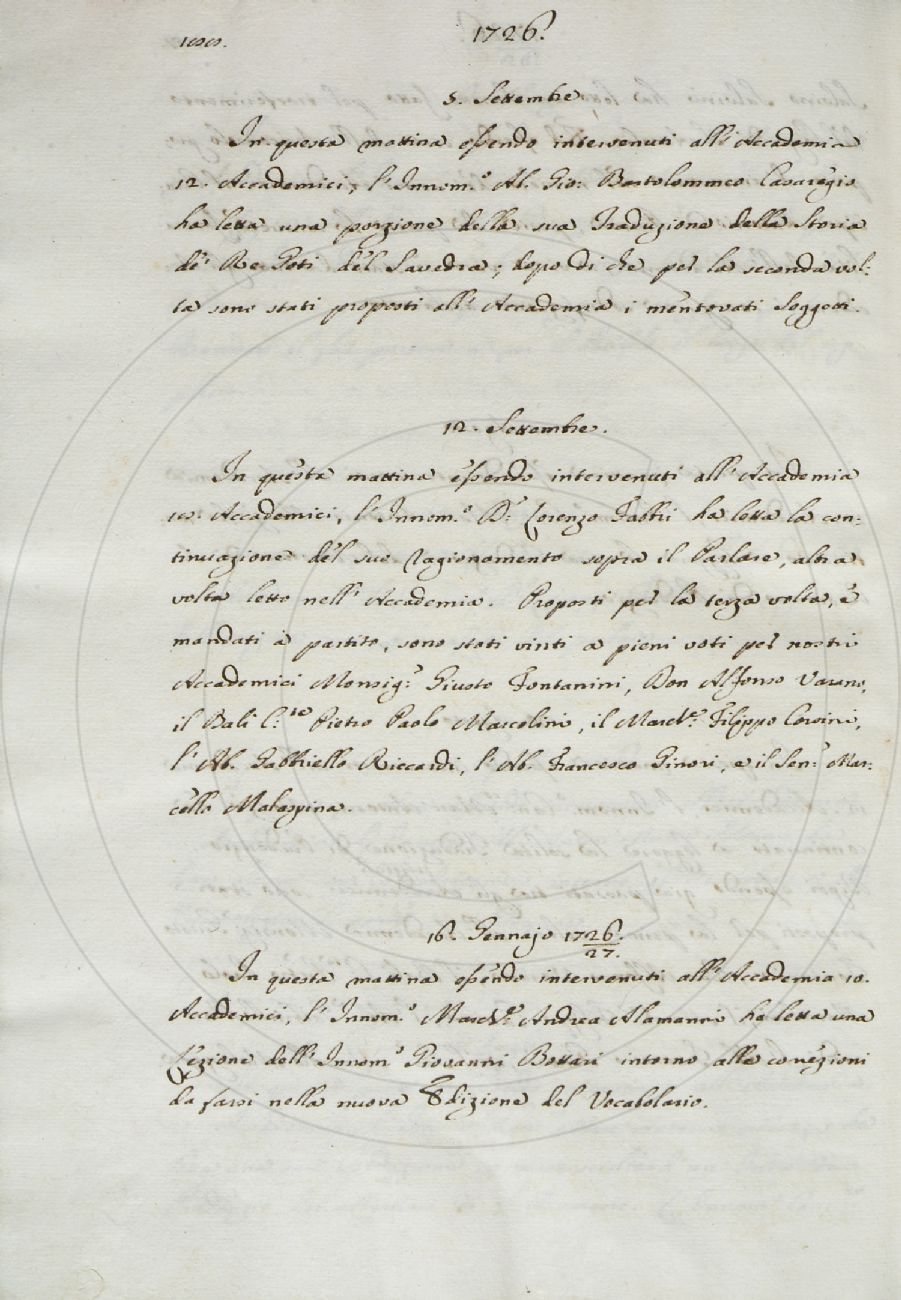 1726.
5. Settembre
In questa mattina essendo intervenuti all'Accademia
12. Accademici, l'Innom.º Ab. Gio: Bartolommeo Casaregio
ha letta una porzione della sua Traduzione della Storia
de' Re Goti del Savedra; dopo di che per la seconda vol:
ta sono stati proposti all'Accademia i mentovati Soggetti.
12. Settembre.
In questa mattina essendo intervenuti all'Accademia
10. Accademici, l'Innom.º D.r Lorenzo Fabbri ha letta la con:
tinuazione del suo Ragionamento sopra il Parlare, altra
volta letto nell'Accademia. Proposti per la terza volta, e
mandati a partito, sono stati vinti a pieni voti per nostri
Accademici Monsig.r Giusto Fontanini, Don Alfonso Varano,
il Balì C.te Pietro Paolo Mascolini, il March.e Filippo Corsini,
l'Ab. Gabbriello Riccardi, l'Ab. Francesco Ginori, e il Sen.r Mar:
cello Malaspina.
16. Gennajo 1726/27.
In questa mattina essendo intervenuti all'Accademia 10.
Accademici, l'Innom.º March.e Andrea Alamanni ha letta una
Lezione dell'Innom.º Giovanni Bottari intorno alle correzioni
da farsi nella nuova Edizione del Vocabolario.